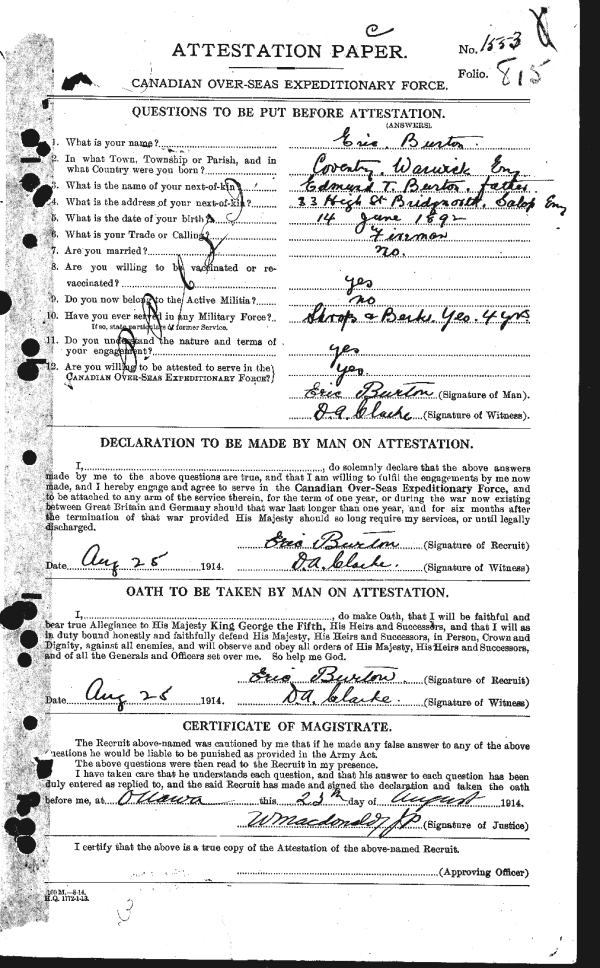 C
ATTESTATION PAPER.
No. 1553
Folio. 815
CANADIAN OVER-SEAS EXPEDITIONARY FORCE.
QUESTIONS TO BE PUT BEFORE ATTESTATION.
(ANSWERS).
1. What is your name? Eric Burton
2. In what Town, Township or Parish, and in
what Country were you born? Coventry, Warwick Eng
3. What is the name of your next-of-kin? Edmund T. Burton. father
4. What is the address of your next-of-kin? 33 High St Bridgnorth. Salop Eng
5. What is the date of your birth? 14 June 1892
6. What is your Trade or Calling? Fireman
7. Are you married? no.
8. Are you willing to be vaccinated or re-
vaccinated? yes
9. Do you now belong to the Active Militia? no
10. Have you ever served in any Military Force? Shrops & Berks. Yes. 4 yrs
If so, state particulars of former Service.
11. Do you understand the nature and terms of
your engagement? yes
12. Are you willing to be attested to serve in the
CANADIAN OVER-SEAS EXPEDITIONARY FORCE? yes.
Eric Burton (Signature of Man).
D.A. Clarke (Signature of Witness).
DECLARATION TO BE MADE BY MAN ON ATTESTATION.
I, , do solemnly declare that the above answers
made by me to the above questions are true, and that I am willing to fulfil the engagements by me now
made, and I hereby engage and agree to serve in the Canadian Over-Seas Expeditionary Force, and
to be attached to any arm of the service therein, for the term of one year, or during the war now existing
between Great Britain and Germany should that war last longer than one year, and for six months after
the termination of that war provided His Majesty should so long require my services, or until legally
discharged.
Eric Burton (Signature of Recruit)
Date Aug 25 1914. D.A. Clarke. (Signature of Witness)
OATH TO BE TAKEN BY MAN ON ATTESTATION.
I, , do make Oath, that I will be faithful and
bear true Allegiance to His Majesty King George the Fifth, His Heirs and Successors, and that I will as
in duty bound honestly and faithfully defend His Majesty, His Heirs and Successors, in Person, Crown and
Dignity, against all enemies, and will observe and obey all orders of His Majesty, His Heirs and Successors,
and of all the Generals and Officers set over me. So help me God.
Eric Burton. (Signature of Recruit)
Date Aug 25 1914. D.A. Clarke. (Signature of Witness)
CERTIFICATE OF MAGISTRATE.
The Recruit above-named was cautioned by me that if he made any false answer to any of the above
questions he would be liable to be punished as provided in the Army Act.
The above questions were then read to the Recruit in my presence.
I have taken care that he understands each question, and that his answer to each question has been
duly entered as replied to, and the said Recruit has made and signed the declaration and taken the oath
before me, at Ottawa this 25th day of August 1914.
W Macdonald J.P (Signature of Justice)
I certify that the above is a true copy of the Attestation of the above-named Recruit.
(Approving Officer)
H.Q. 1772-1-13.